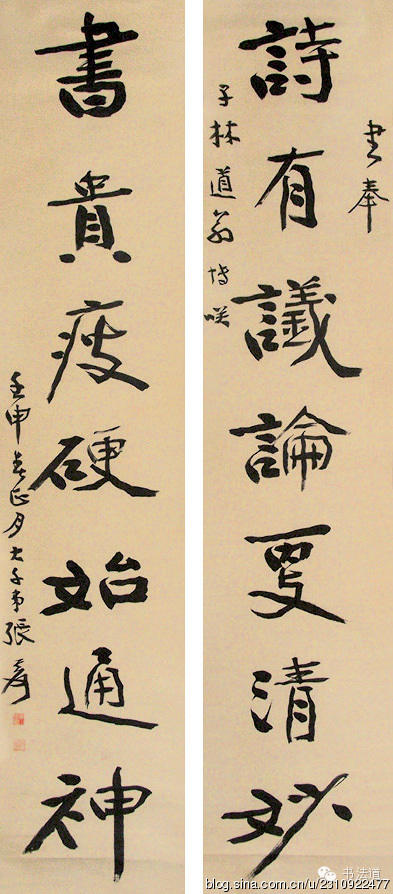 書奉
詩有議論更清妙
子林道翁博咲
書貴瘦硬始通神
壬申春正月大千弟張爰
书法道
blog.sina.com.cn/u/2310922477